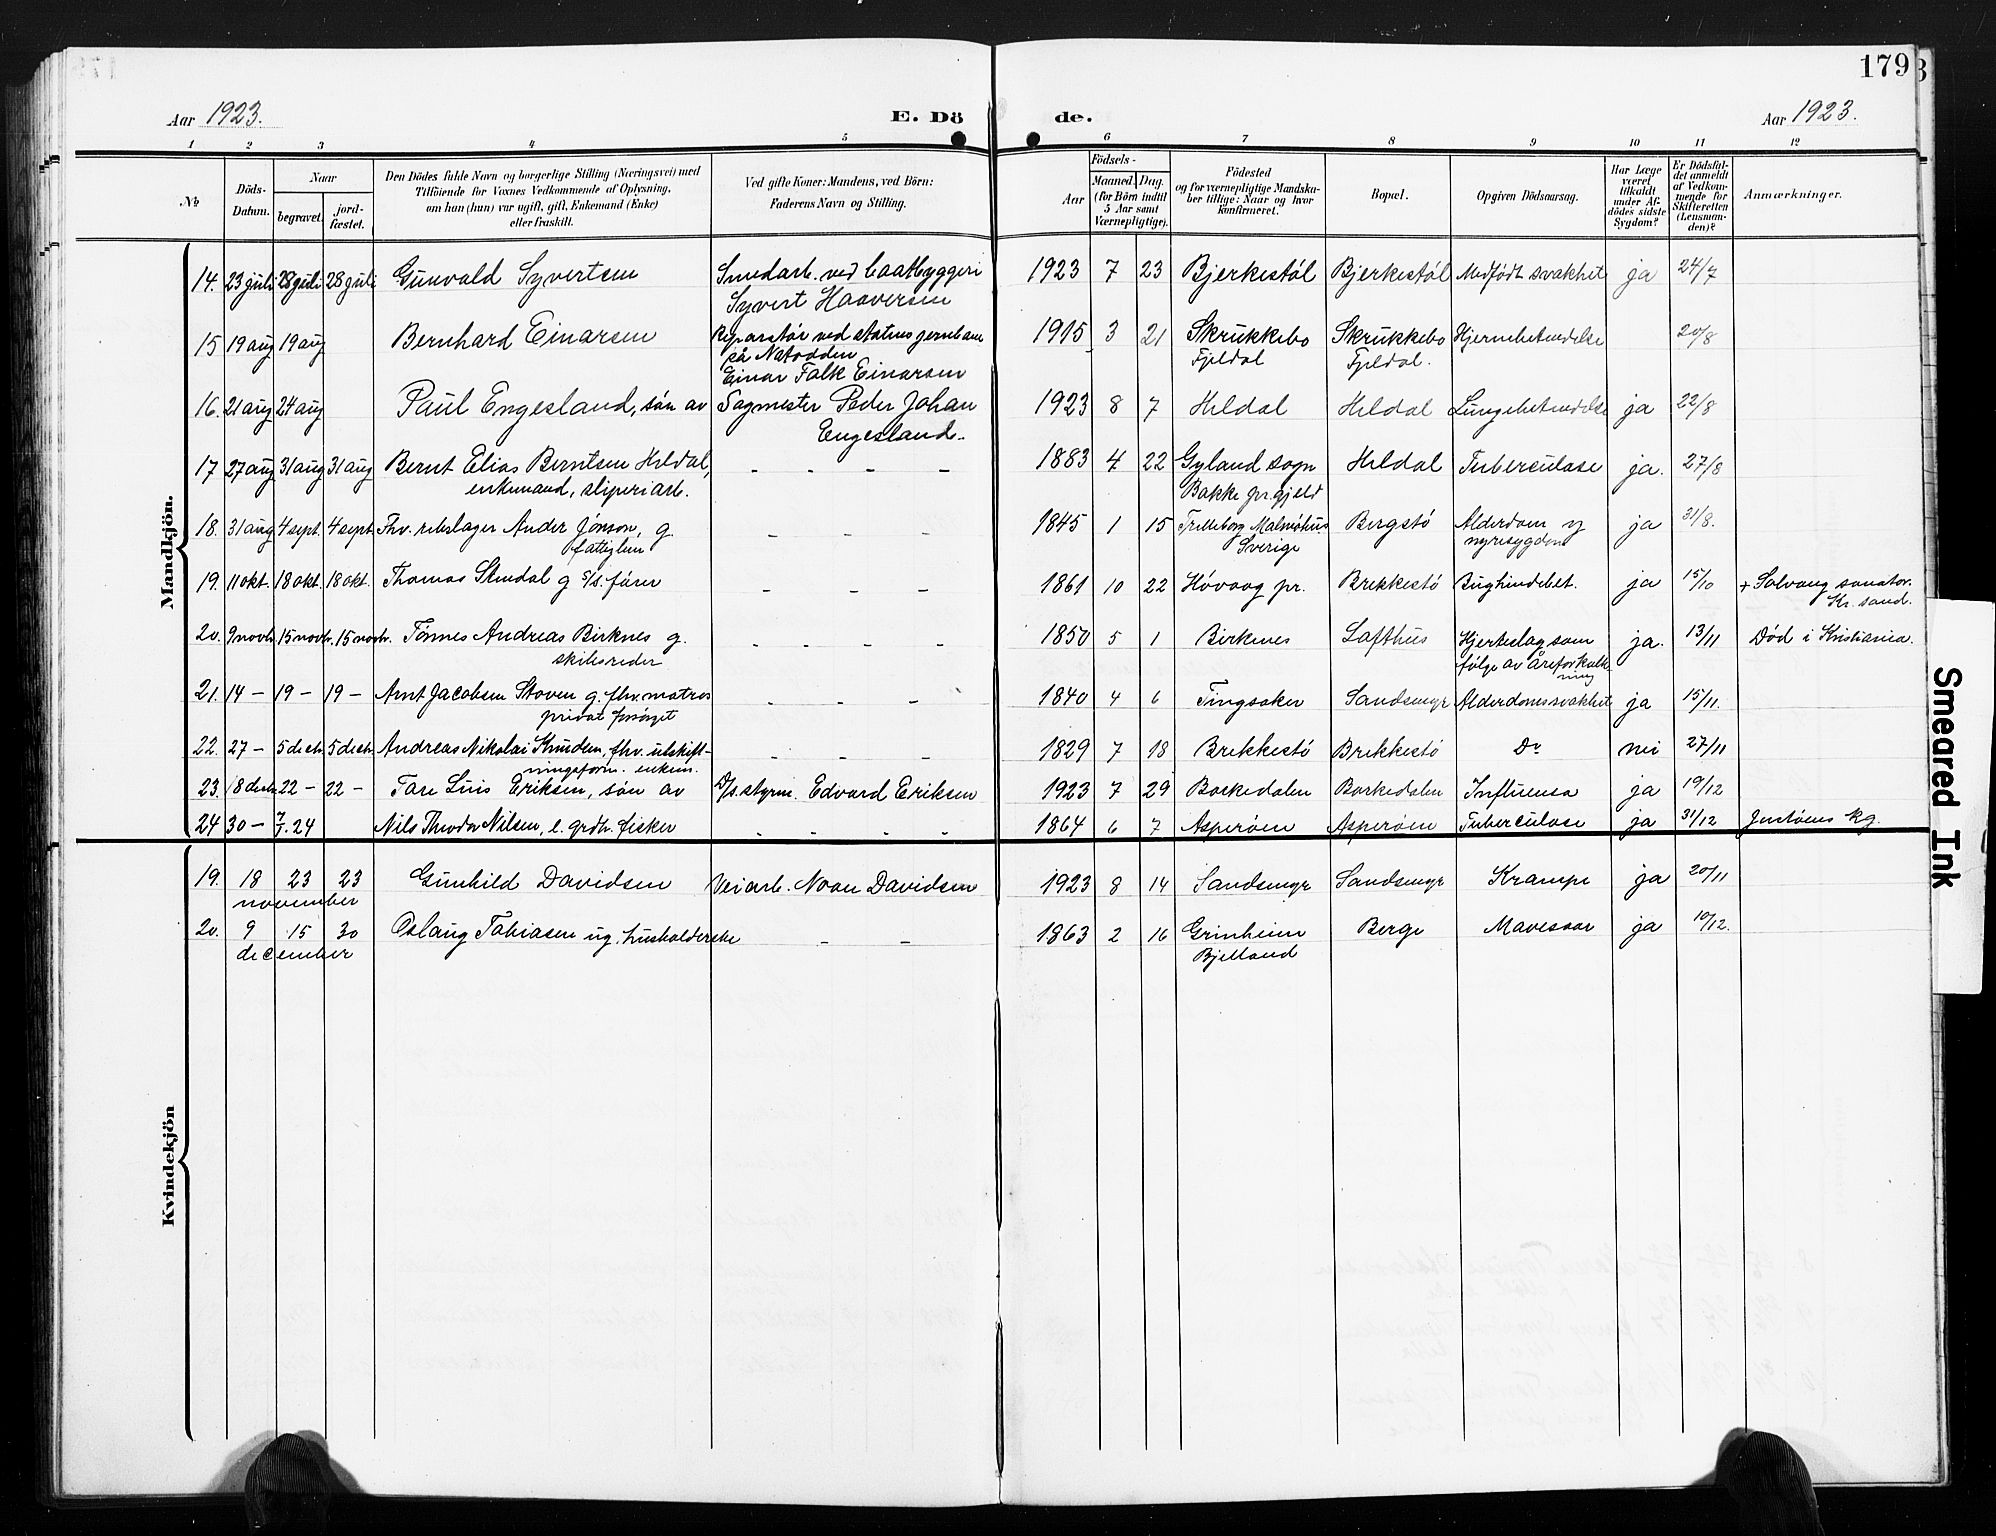 179
Aar 1923.
E. Dö de.
Aar 1923.
1 2 3 4 5 6 7 8 9 10 11 12
No
Döds-Datum.
Naar
begravet.
jordfæstet.
Den Dödes fulde Navn og borgerlige Stilling (Næringsvei) med
Tilföiende for Voxnes Vedkommende af Oplysning,
om han (hun) var ugift, gift, Enkemand (Enke)
eller fraskilt.
Ved gifte Koner: Mandens, ved Börn:
Faderens Navn og Stilling.
Födsels-
Aar
Maaned. Dag.
(for Börn indtil
5 Aar samt
Værnepligtige).
Födested
og for værnepligtige Mandskaber
tillige: Naar og hvor
konfirmeret.
Bopæl.
Opgiven Dödsaarsag.
Har Læge
været
tilkaldt
under Afdödes
sidste
Sygdom?
Er Dödsfaldet
anmeldt
af Vedkommende
for
Skifteretten
(Lensmanden)?
Anmærkninger.
Mandkjön.
14. 23 juli 28 juli 28 juli Gunvald Syvertsen Smedarb. ved baatbyggeri 1923 7 23 Bjerkestøl Bjerkestøl Medfødt svakhet ja 24/7
Syvert Haaversen
15 19 aug 19 aug Bernhard Einarsen Reparatør ved statens jernbane 1915 3 21 Skrukkebo Skrukkebo Hjernebetændelse 20/8
på Notodden Fjeldal Fjeldal.
Einar Falk Einarsen
16. 21 aug 24 aug Paul Engesland, søn av Sagmester Peder Johan 1923 8 7 Heldal Heldal Lungebetændelse ja 22/8
Engesland.
17 27 aug 31 aug 31 aug Bernt Elias Berntsen Heldal, - - - - 1883 4 22 Gyland sogn Heldal Tuberculose ja. 27/8
enkemand, sliperiarb. Bakke pr.gjeld
18. 31 aug 4 sept. 4 sept. Fhv. rebslager Ander Jönson, g. - - - 1845 1 15 Trelleborg Malmøhus Bergstø Alderdom og ja 31/8.
fattiglem Sverige nyresygdom
19. 11 okt. 18 okt. 18 okt. Thomas Stendal g S/s. fører - - - 1861 10 22 Høvaag pr. Brekkestø Bughindebet. ja 15/10 + Solvang sanator.
Kr. sand.
20. 9 novb. 15 novb. 15 novb. Tønnes Andreas Birknes g. - - - - 1850 5 1 Birkenes Lofthus Hjerteslag som ja. 13/11 Død i Kristiania.
skibsreder følge av åreforkalkning
21. 14 - 19 - 19 - Arnt Jacobsen Stoven g. fhv. matros - - - 1840 4 6 Tingsaker Sandsmyr Alderdomssvakhet ja 15/11.
privat forsørget
22. 27 - 5 decb. 5 decb. Andreas Nikolai Knudsen, fhv. utskift- - - - 1829 7 18 Brekkestø Brekkestø Do nei 27/11
ningsform. enkem.
23. 18 decb. 22 - 22 - Tore Luis Eriksen, søn av D/s. styrm. Edvard Eriksen 1923 7 29 Borkedalen Borkedalen Influensa ja 19/12
24 30 - 7/1. 24 Nils Theodor Nilsen, e. grdb. fisker - - - - 1864 6 7 Asperøen Asperøen Tuberculose ja 31/12 Justøens kg.
Kvindekjön
19. 18 23 23 Gunhild Davidsen Veiarb. Noan Davidsen 1923 8 14 Sandsmyr Sandsmyr Krampe ja 20/11
november
20. 9 15 30 Oslaug Tobiasen ug. husholderske - - 1863 2 16 Grinheim Berge Mavesaar ja 10/12.
december Bjelland
Smeared Ink